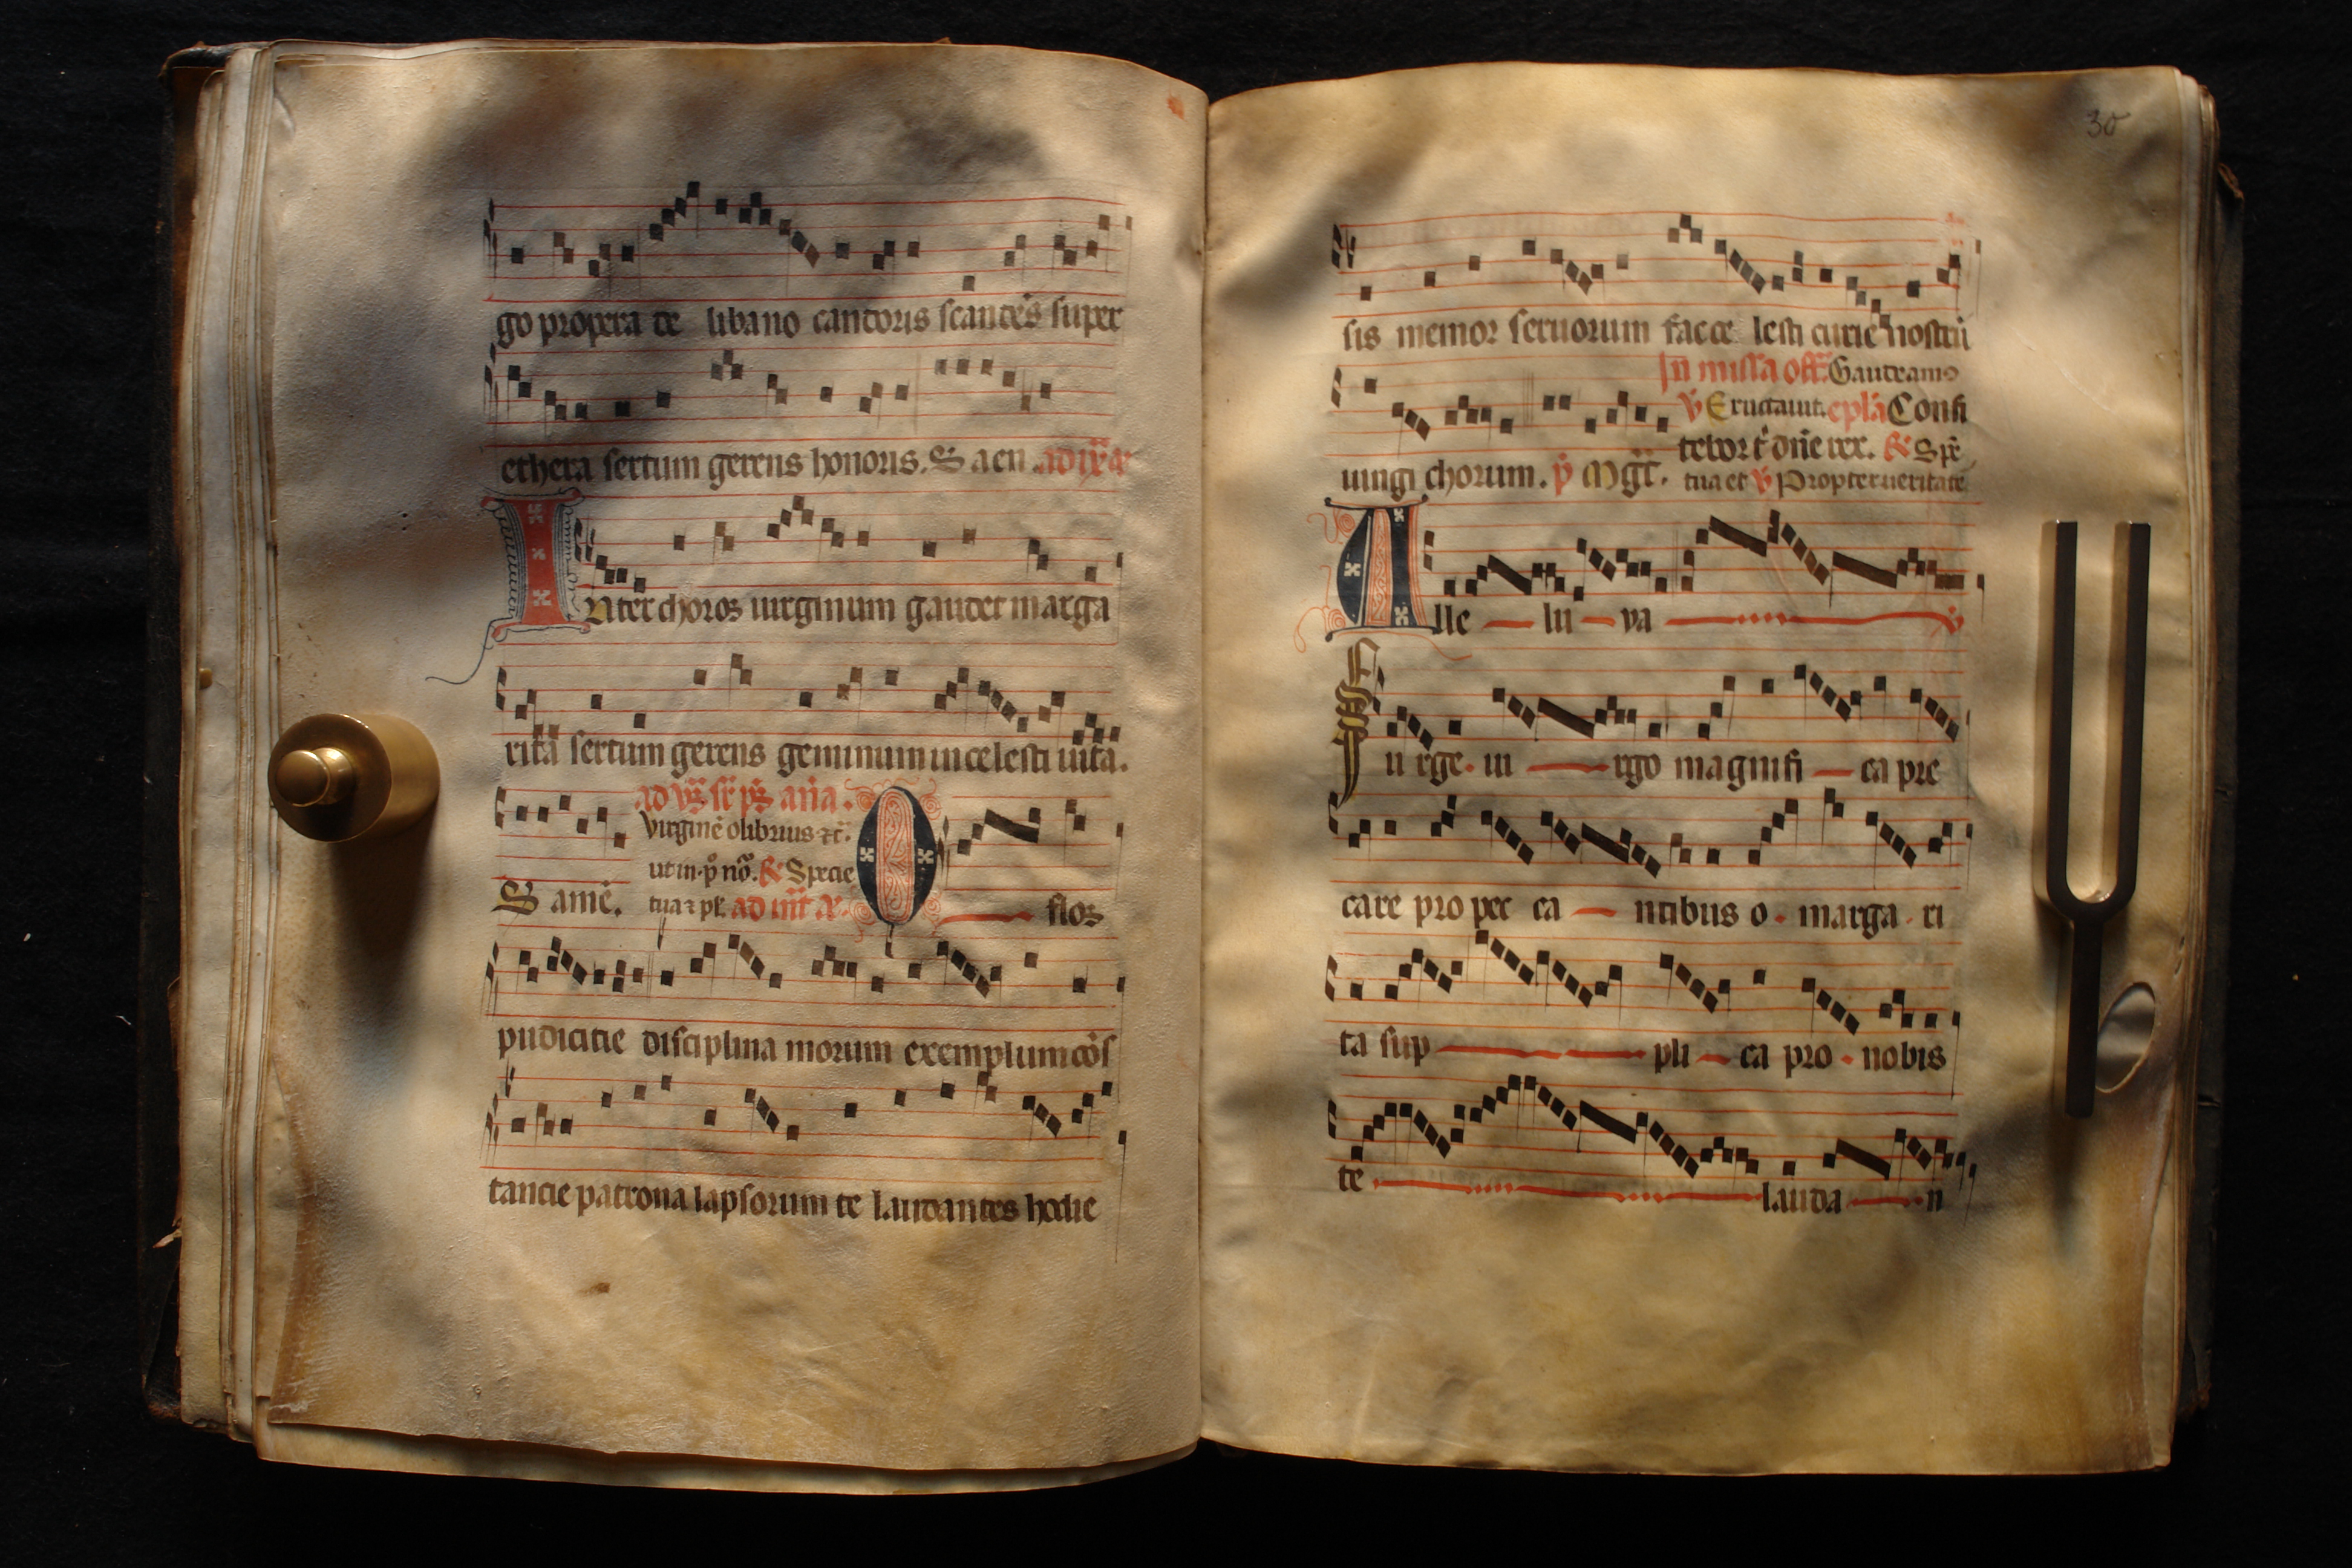 go propera te libano cantoris scantes super
ethera sertum gerens honoris. S aen ad ix a
Inter choros uirginum gaudet marga
rita sertum gerens geminum in celesti uita.
ad vs sr ps ana.
Virginē olibrius
ut in p̄ no. R Specie
S amē. tua ad iii a. O flos
pudicitie disciplina morum exemplum cōs
tancie patrona lapsorum te laudantes hodie
30
sis memor seruorum fac ce lesti curie nostrū
In missa off. Gaudeam
v Eructauit. epla Confi
tebor t dn̄e rex. R Spē
iungi chorum. p̄ Mgt. tua et v Propter ueritatē
Alle lu ya v
Surge ui rgo magnifi ca pre
care pro pec ca ntibus o marga ri
ta sup pli ca pro nobis
te lauda n